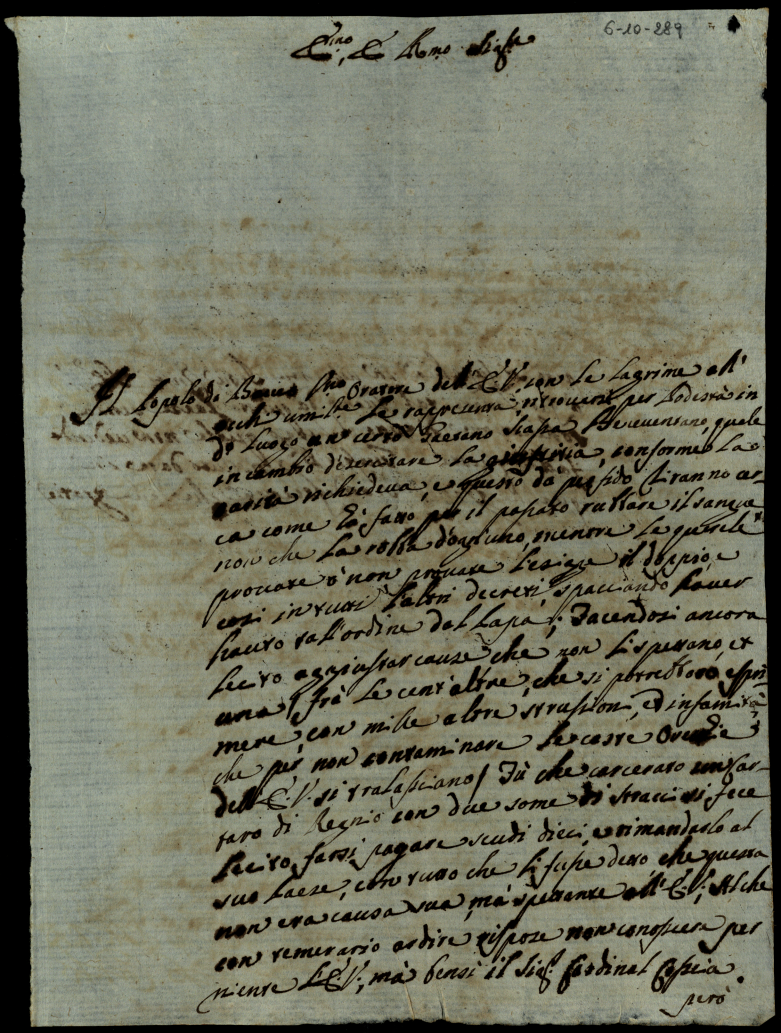 6-10-289
E.mo, e R.mo Sig.re
Il Popolo di Oratore dell'E.V. con le lagrime all'
occhi umil.te Le rappresenta ritrovarsi per Podestà in
di Luogo un certo Gaetano Beneventano, quale
in cambio di esercitare La giustizia, conforme La
carità richiedeva, e questo da perfido Tiranno cer-
ca come hà fatto per il passato il sangue
non che La robba d'ogn'uno, mentre Le querele
provate ò non provate L'esigge il doppio, e
così in tutti l'altri decreti, spacciando haver
havuto tall'ordine dal Papa; Facendosi ancora
Lecito aggiustar cause che non Li spettano, et
una (frà Le cent'altre, che si potrebbero espri-
mere, con mille altre, ed infamità
che per non contaminare Le caste Orecchie
dell'E.V. si tralasciano) Fù che carcerato un Car-
taro di con due some di stracci si fece
Lecito farsi pagare scudi dieci, e rimandarlo al
suo Paese, con tutto che Li fusse detto, che questa
non era causa sua, mà spettante all'E.V.; Al che
con temerario ardire rispose non conoscere per
niente L'E.V., mà bensi il Sig.r Cardinal Coscia
però